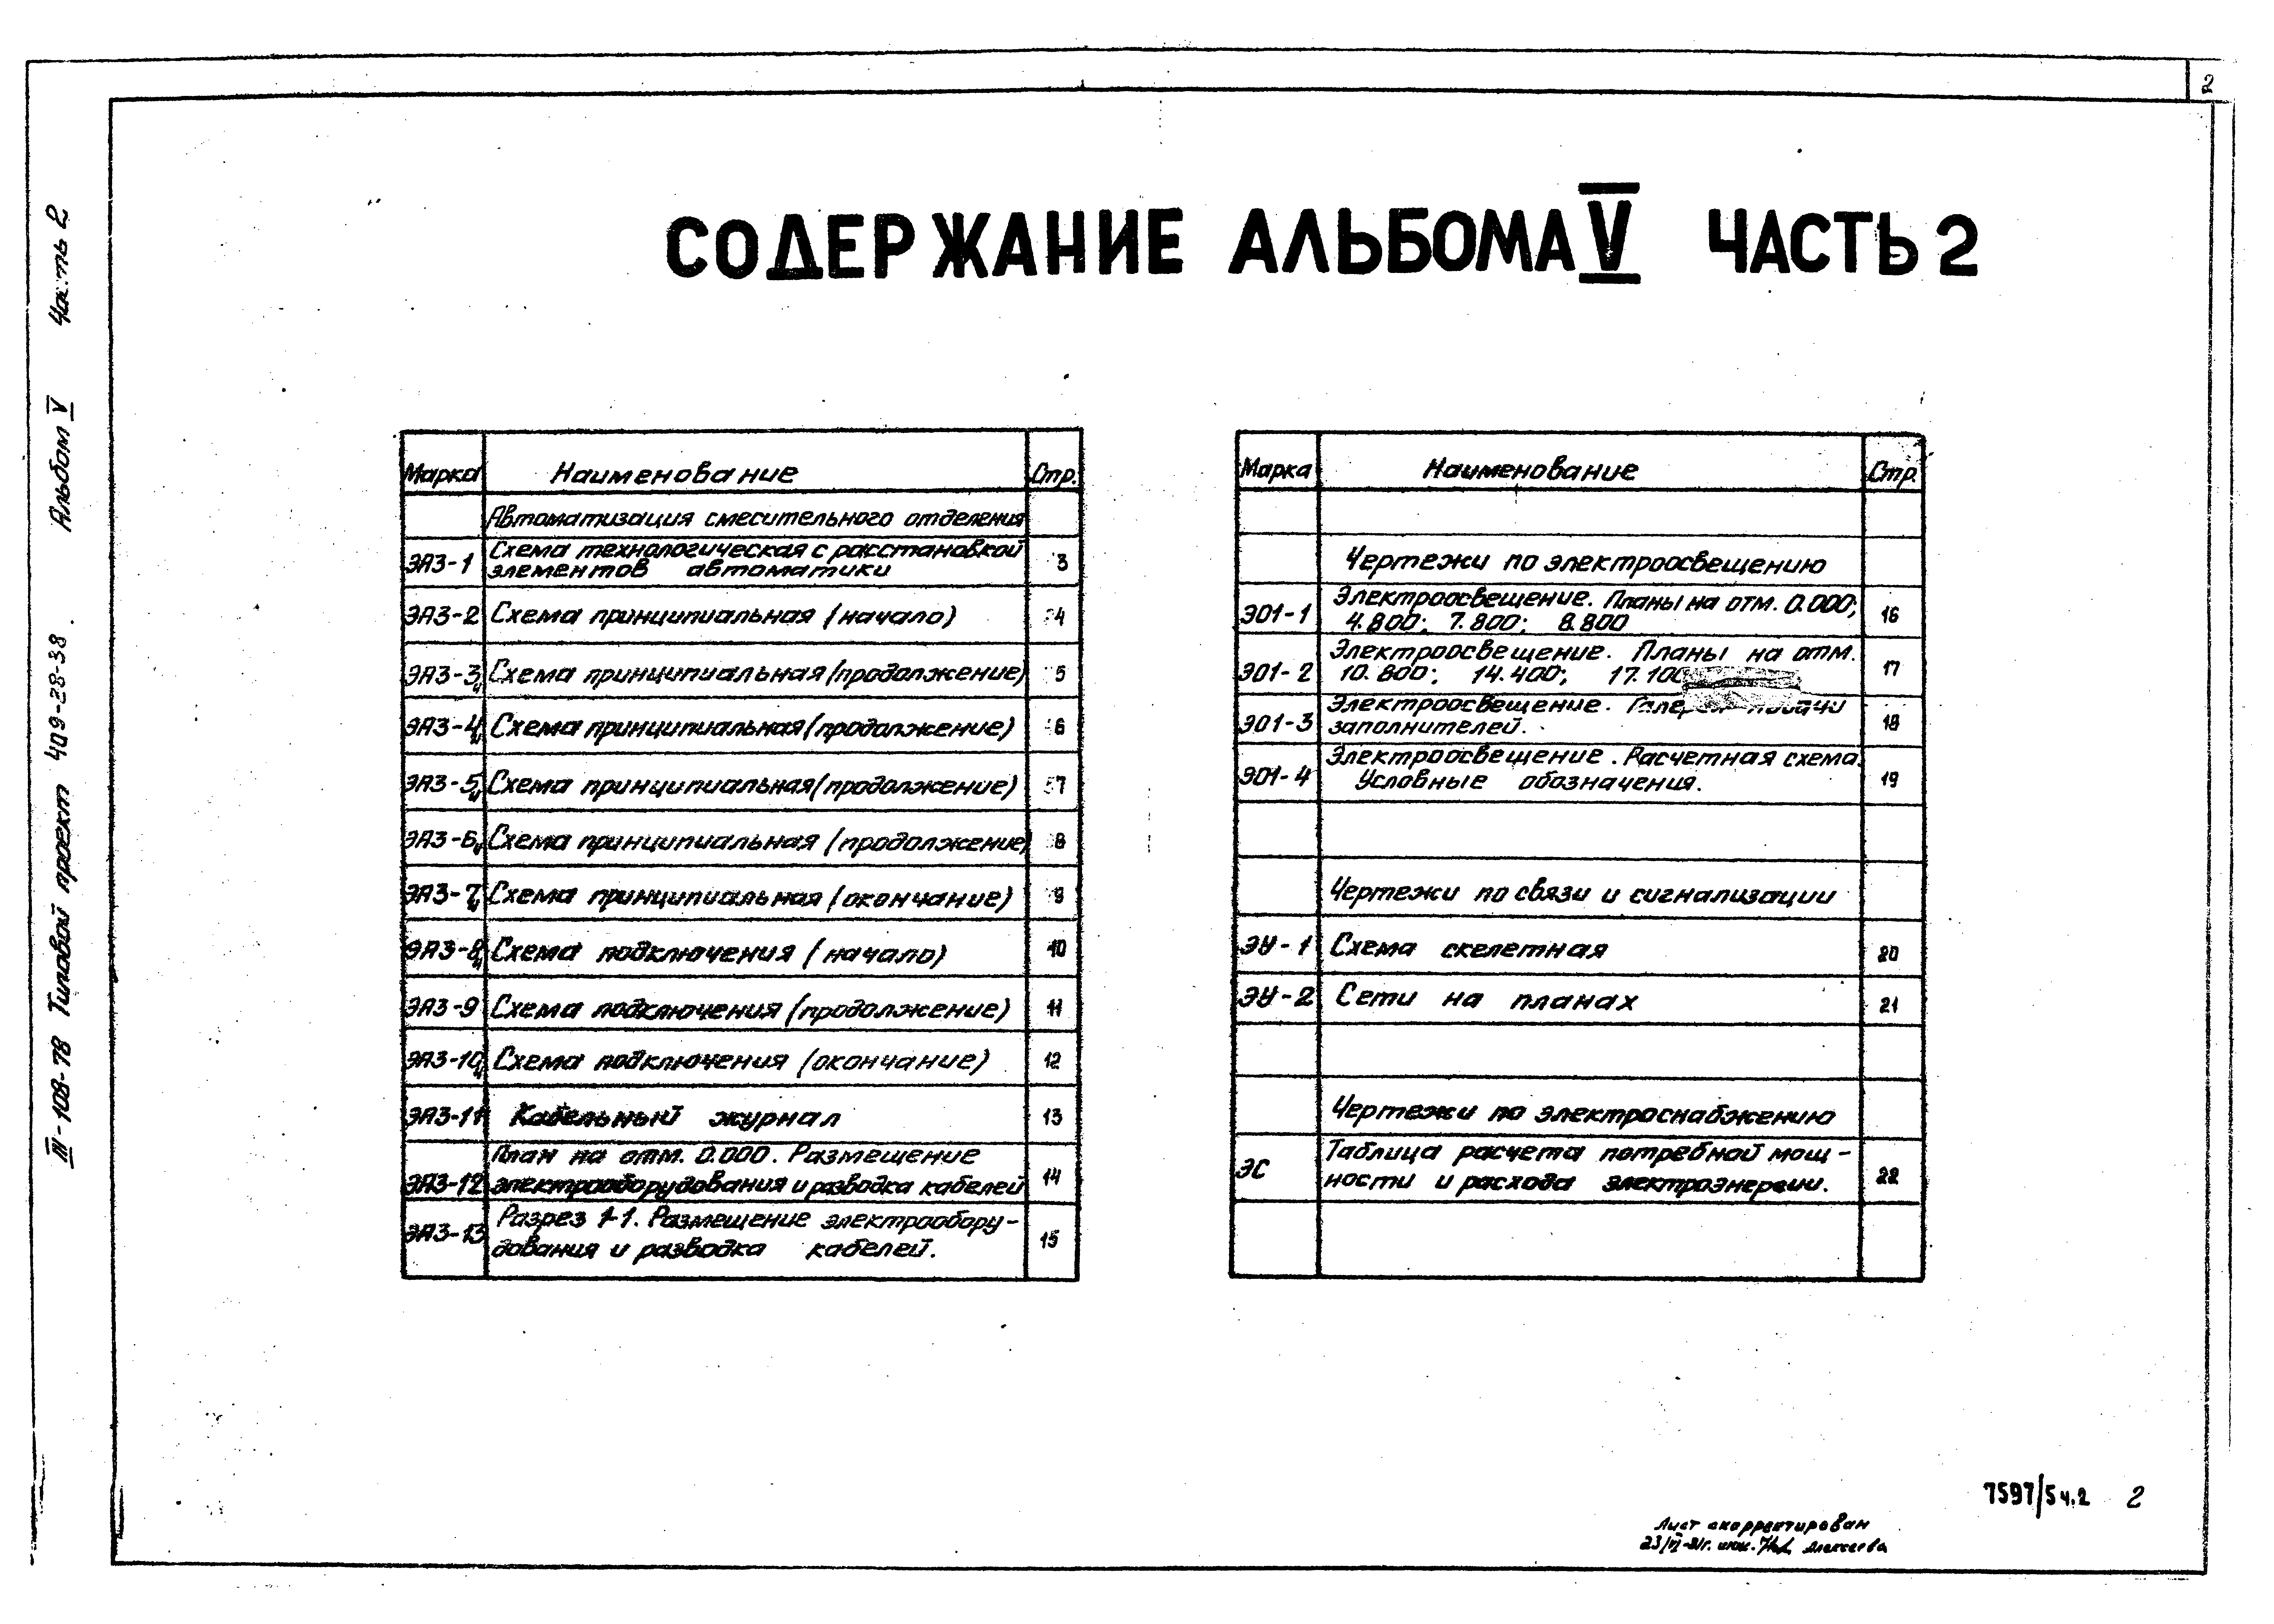 2
СОДЕРЖАНИЕ АЛЬБОМА V ЧАСТЬ 2
III-108-78 Типовой проект 409-28-38. Альбом V Часть 2
Марка Наименование Стр.
Автоматизация смесительного отделения
ЭА3-1 Схема технологическая с расстановкой 3
элементов автоматики
ЭА3-2 Схема принципиальная (начало) 4
ЭА3-3и Схема принципиальная (продолжение) 5
ЭА3-4и Схема принципиальная (продолжение) 6
ЭА3-5и Схема принципиальная (продолжение) 7
ЭА3-6и Схема принципиальная (продолжение) 8
ЭА3-7и Схема принципиальная (окончание) 9
ЭА3-8и Схема подключения (начало) 10
ЭА3-9 Схема подключения (продолжение) 11
ЭА3-10и Схема подключения (окончание) 12
ЭА3-11 Кабельный журнал 13
План на отм. 0.000. Размещение
ЭА3-12 электрооборудования и разводка кабелей 14
ЭА3-13 Разрез 1-1. Размещение электрообору- 15
дования и разводка кабелей.
Марка Наименование Стр.
Чертежи по электроосвещению
ЭО1-1 Электроосвещение. Планы на отм. 0.000; 16
4.800; 7.800; 8.800
Электроосвещение. Планы на отм. 17
ЭО1-2 10.800; 14.400; 17.100
Электроосвещение. Галерея подачи 18
ЭО1-3 заполнителей.
Электроосвещение. Расчетная схема.
ЭО1-4 Условные обозначения. 19
Чертежи по связи и сигнализации
ЭУ-1 Схема скелетная 20
ЭУ-2 Сети на планах 21
Чертежи по электроснабжению
ЭС Таблица расчета потребной мощ- 22
ности и расхода электроэнергии.
7597/5 ч.2 2
Лист скорректирован
23/VI-81г. инж. Алексеева